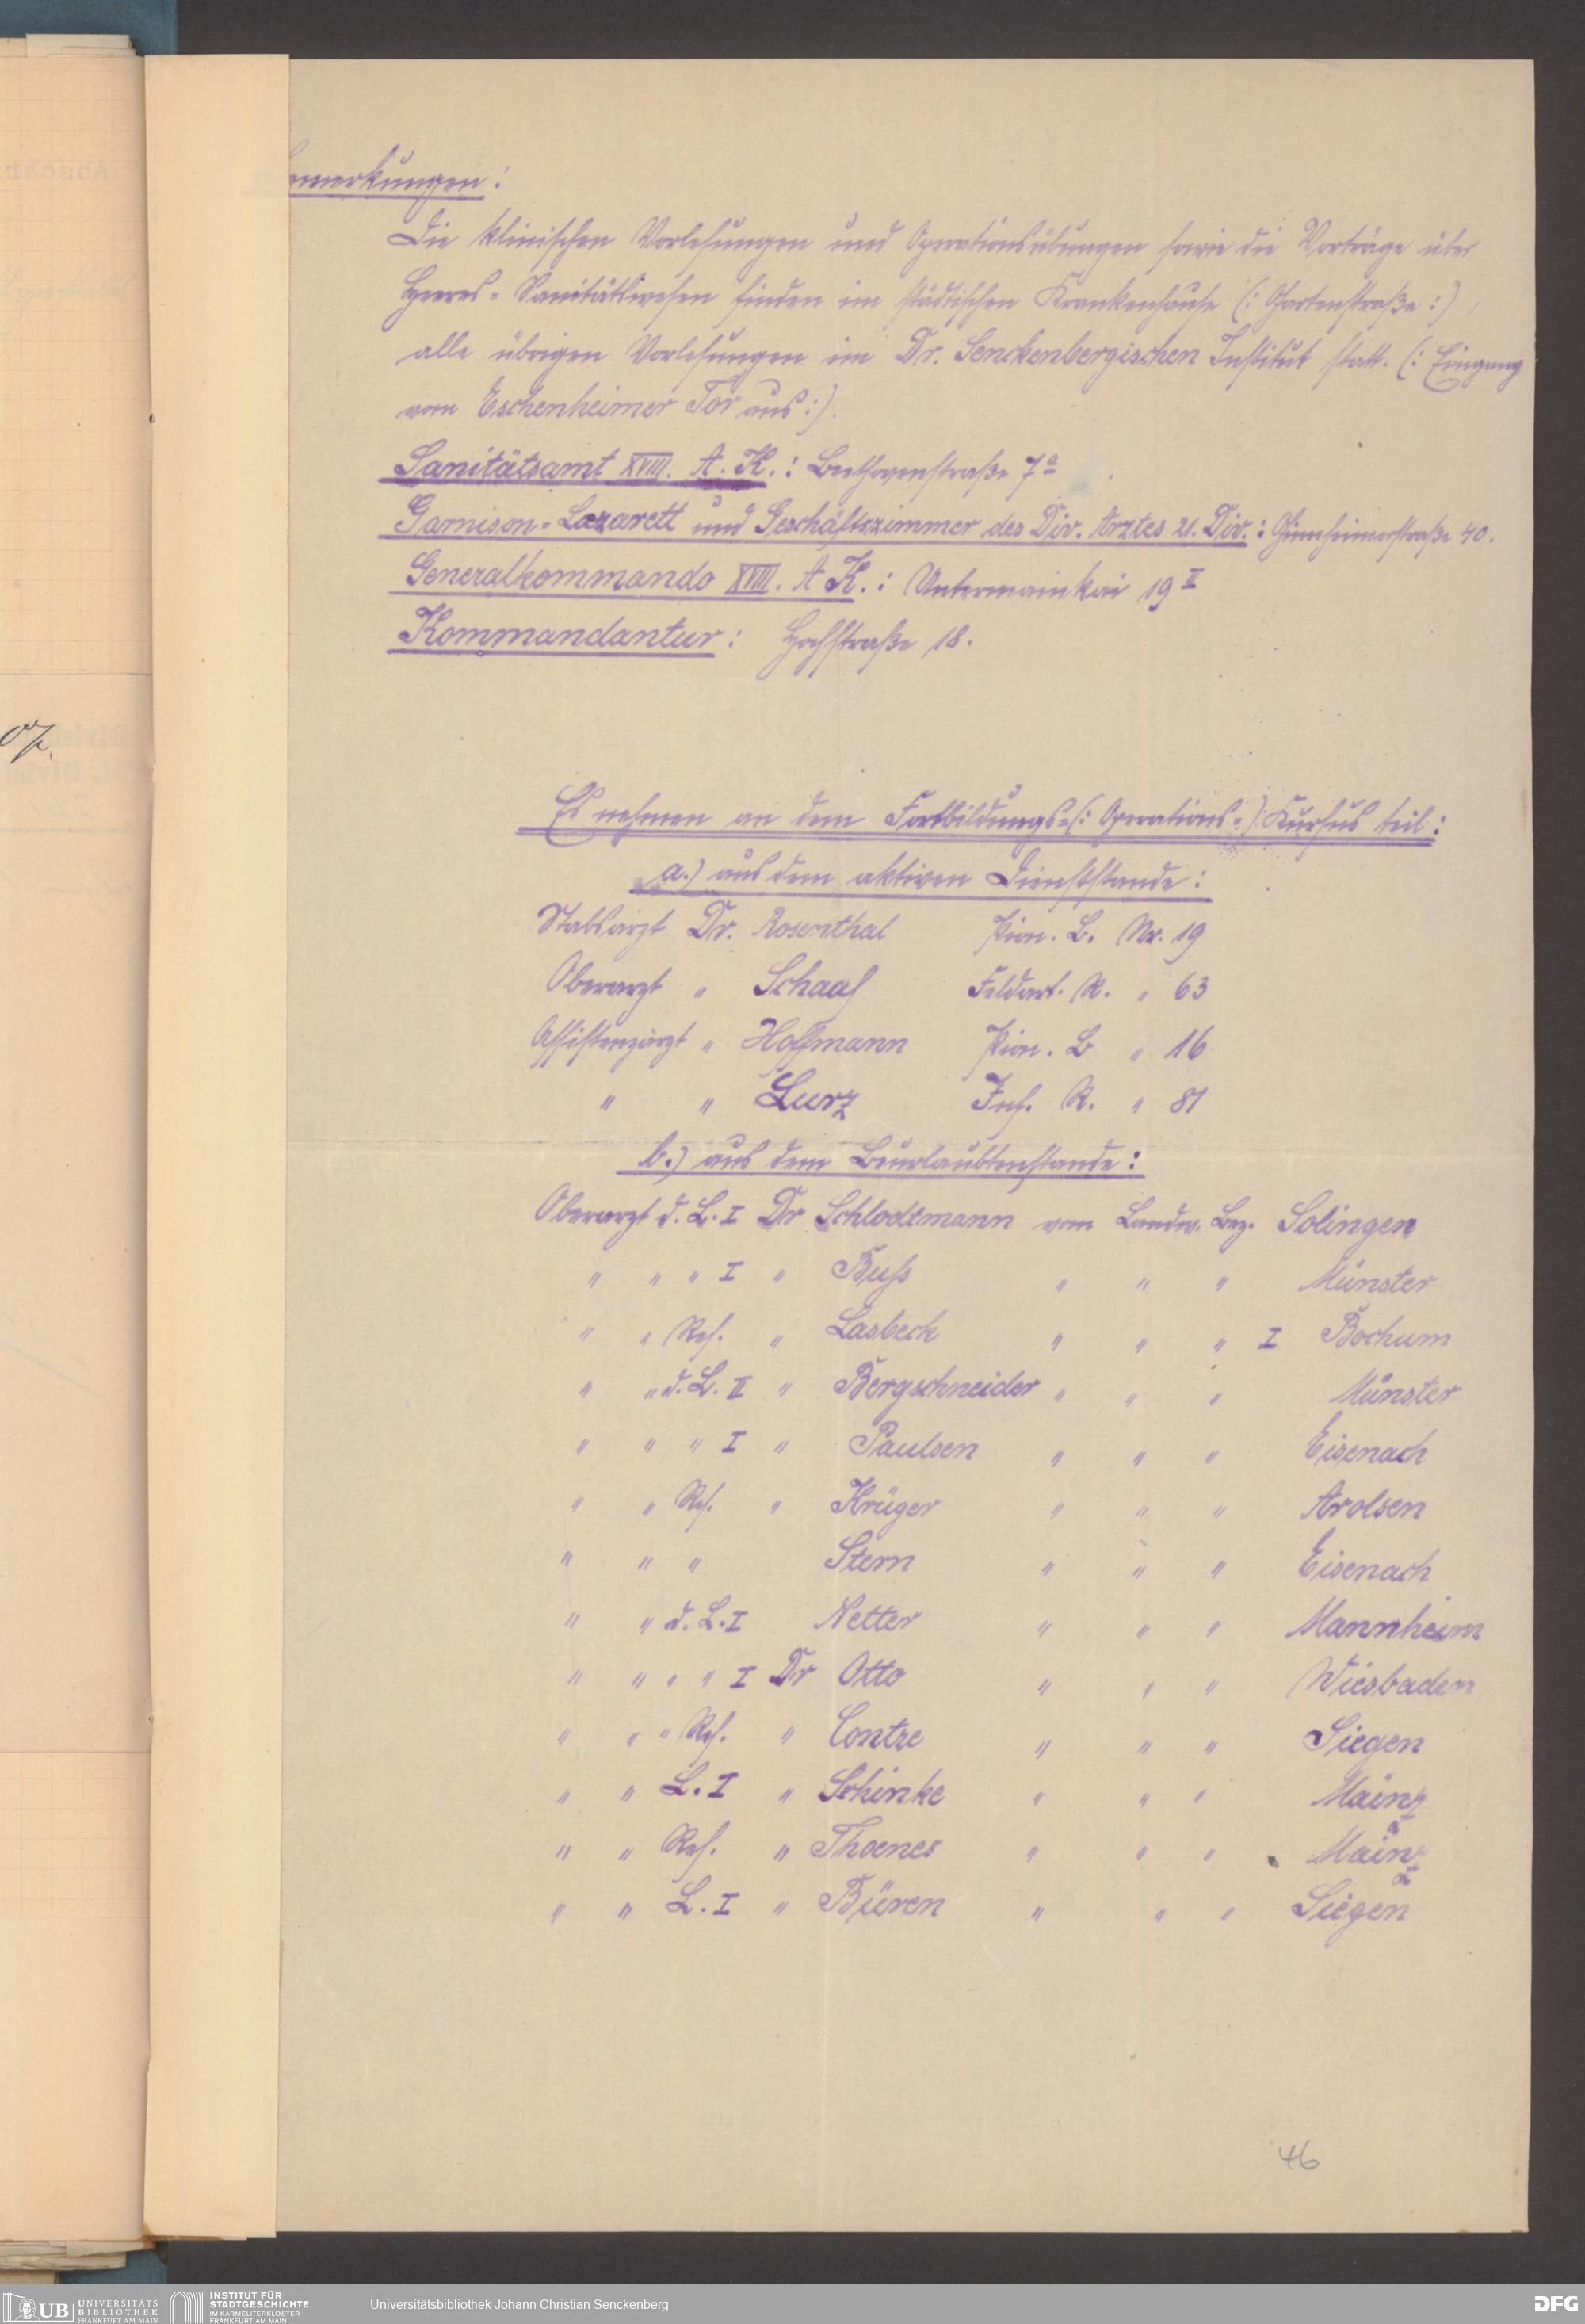 emerkungen:
Die klinischen Vorlesungen und Operationsübungen sowie die Vorträge über
Heeres-Sanitätswesen finden im städtischen Krankenhause (: Gartenstraße :),
alle übrigen Vorlesungen im Dr. Senckenbergischen Institut statt. (: Eingang
vom Eschenheimer Tor aus :).
Sanitätsamt XVIII. A. K.: Beethovenstraße 7a
Garnison-Lazarett und Geschäftszimmer des Div. Arztes 21. Div.: Ginnheimerstraße 40.
Generalkommando XVIII. A K.: Untermainkai 19 II
Kommandantur: Hochstraße 18.
07.
Es nehmen an dem Fortbildungs-(: Operations- :) Kursus teil:
a.) aus dem aktiven Dienststande:
Stabsarzt Dr. Rosenthal Pion. B. Nr. 19
Oberarzt " Schaaf Feldart. R. " 63
Assistenzarzt " Hoffmann Pion. B " 16
" " Lurz Inf. R. " 81
b.) aus dem Beurlaubtenstande:
Oberarzt d. L. I Dr Schlodtmann vom Landw. Bez. Solingen
" " " I " Buss " " " Münster
" " Res. " Lasbeck " " " I Bochum
" " d. L. II " Bergschneider " " " Münster
" " " I " Paulsen " " " Eisenach
" " Res. " Krüger " " " Arolsen
" " " Stern " " " Eisenach
" " d. L. I Netter " " " Mannheim
" " " " I Dr Otto " " " Wiesbaden
" " " Res. " Contze " " " Siegen
" " L. I " Schinke " " " Mainz
" " Res. " Thoenes " " " Mainz
" " L. I " Büren " " " Siegen
46
UB UNIVERSITÄTS
BIBLIOTHEK
FRANKFURT AM MAIN
INSTITUT FÜR
STADTGESCHICHTE
IM KARMELITERKLOSTER
FRANKFURT AM MAIN
Universitätsbibliothek Johann Christian Senckenberg
DFG